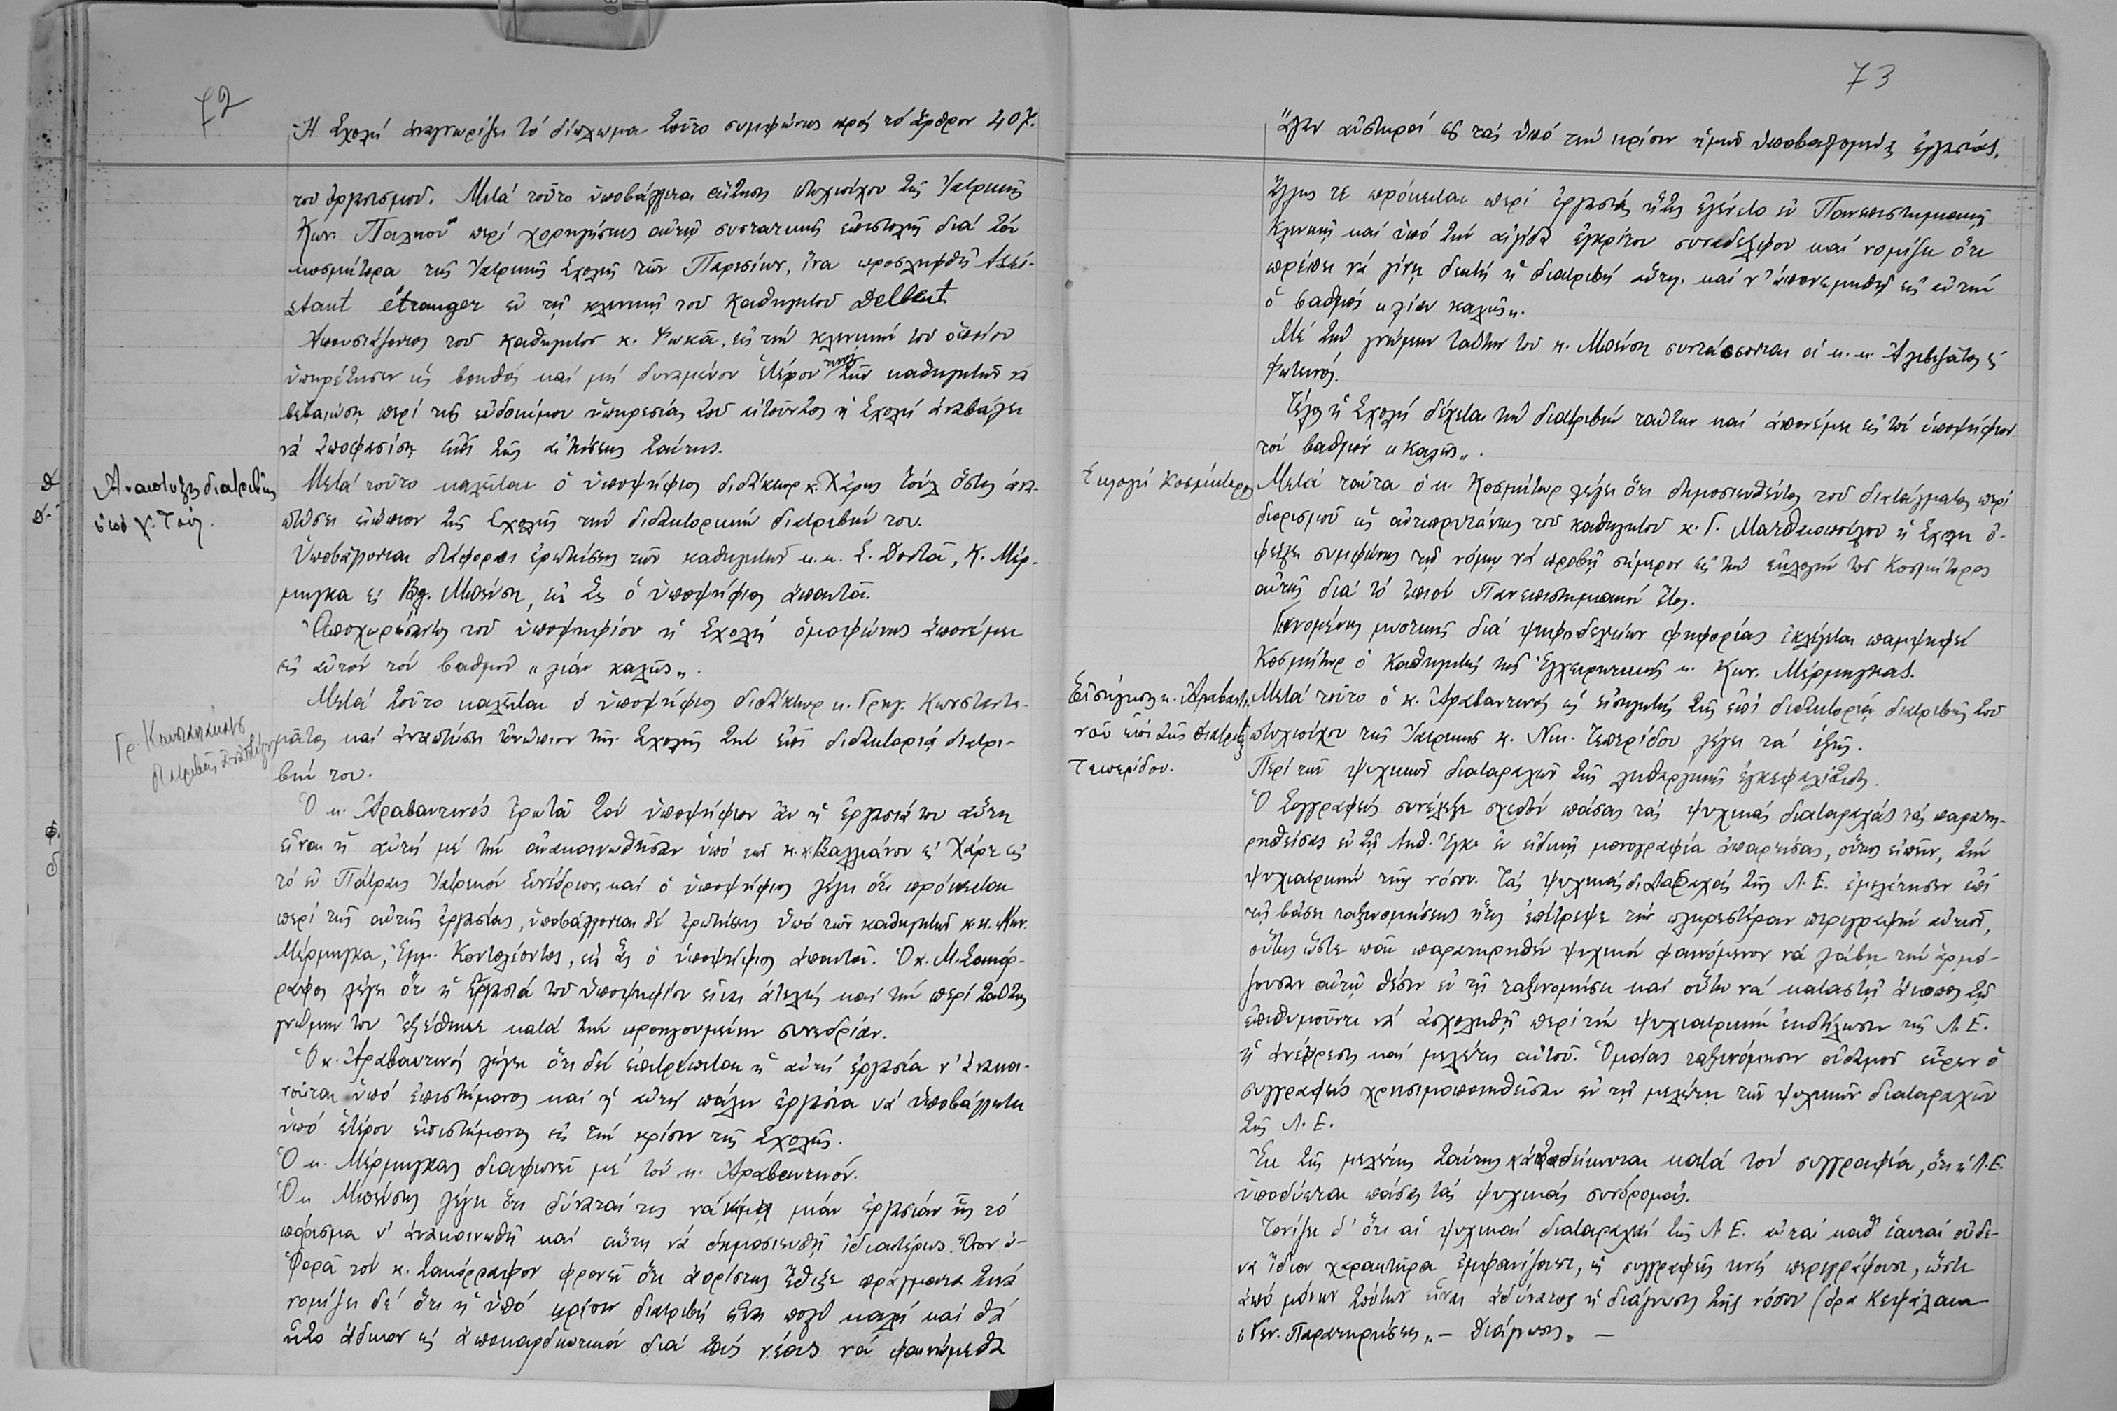 72
Ἡ Σχολή ἀναγνωρίζει τό δίπλωμα τοῦτο συμφώνως πρός τό ἄρθρον 407.
τοῦ ὀργανισμοῦ. Μετά τοῦτο ὑποβάλλεται αἴτησις πτυχιούχου τῆς Ἰατρικῆς
Κων. περί χορηγήσεως αὐτῷ συστατικῆς ἐπιστολῆς διά τόν
κοσμήτορα τῆς Ἰατρικῆς Σχολῆς τῶν Παρισίων, ἵνα προσληφθῇ Assi-
stant étranger ἐν τῇ κλινικῇ τοῦ καθηγητοῦ Delbet
Ἀπουσιάζοντος τοῦ καθηγητοῦ κ. Φωκᾶ, εἰς τήν κλινικήν τοῦ ὁποίου
ὑπηρέτησεν ὡς βοηθός καί μή δυναμένου ἑτέρου τινός τῶν καθηγητῶν νά
βεβαιώσῃ περί τῆς εὐδοκίμου ὑπηρεσίας τοῦ αἰτοῦντος ἡ Σχολή ἀναβάλλει
νά ἀποφασίσῃ ἐπί τῆς αἰτήσεως ταύτης.
Ἀνάπτυξις διατριβῆς
ὑπό Χ. Τούλ.
Μετά τοῦτο καλεῖται ὁ ὑποψήφιος διδάκτωρ κ. Χάρης Τούλ ὅστις ἀνα-
πτύσει ἐνώπιον τῆς Σχολῆς τήν διδακτορικήν διατριβήν του.
Ὑποβάλλονται διάφοροι ἐρωτήσεις τῶν καθηγητῶν κ.κ. Σ. Δοντᾶ, Κ. Μέρ-
μηγκα καί Βλ. Μπένση, εἰς ἅς ὁ ὑποψήφιος ἀπαντᾶ.
Ἀποχωρήσαντος τοῦ ὑποψηφίου ἡ Σχολή ὁμοφώνως ἀπονέμει
εἰς αὐτόν τόν βαθμόν "λίαν καλῶς".
Γρ.
διατριβῆς ἀνάπτυξις
Μετά τοῦτο καλεῖται ὁ ὑποψήφιος διδάκτωρ κ. Γρηγ. Κωνσταντι-
καί ἀναπτύσει ἐνώπιον τῆς Σχολῆς τήν ἐπί διδακτορίᾳ διατρι-
βήν του.
Ὁ κ. Ἀραβαντινός ἐρωτᾶ τόν ὑποψήφιον ἄν ἡ ἐργασία του αὕτη
εἶναι ἡ αὐτή μέ τήν ἀνακοινωθεῖσαν ὑπό τῶν κ.κ. Βαλλιάνου καί Χάρη εἰς
τό ἐν Πάτραις Ἰατρικόν Συνέδριον, καί ὁ ὑποψήφιος λέγει ὅτι πρόκειται
περί τῆς αὐτῆς ἐργασίας, ὑποβάλλονται δέ ἐρωτήσεις ὑπό τῶν καθηγητῶν κ.κ. Κων.
Μέρμηγκα, Ἐμμ. Κοντολέοντος, εἰς ἅς ὁ ὑποψήφιος ἀπαντᾶ. Ὁ κ. Μ. Σακόρ-
ραφος λέγει ὅτι ἡ ἐργασία τοῦ ὑποψηφίου εἶναι ἀτελής καί τήν περί ταύτης
γνώμην του ἐξέθηκε κατά τήν προηγουμένην συνεδρίαν.
Ὁ κ. Ἀραβαντινός λέγει ὅτι δέν ἐπιτρέπεται ἡ αὐτή ἐργασία ν' ἀνακοι-
νοῦται ὑπό ἐπιστήμονος καί ἡ αὐτή πάλιν ἐργασία νά ὑποβάλλεται
ὑπό ἑτέρου ἐπιστήμονος εἰς τήν κρίσιν τῆς Σχολῆς.
Ὁ κ. Μέρμηγκας διαφωνεῖ μέ τόν κ. Ἀραβαντινόν.
Ὁ κ Μπένσης λέγει ὅτι δύναταί τις νά κάμῃ μιάν ἐργασίαν ἧς τό
πόρισμα ν' ἀνακοινωθῇ καί αὕτη νά δημοσιευθῇ ἰδιαιτέρως. Ὅσον ἀ-
φορᾶ τόν κ. Σακόρραφον φρονεῖ ὅτι ἀορίστως ἔθιξε πράγματα τινά
νομίζει δέ ὅτι ἡ ὑπό κρίσιν διατριβή εἶναι πολύ καλή καί θά
ἦτο ἄδικον καί ἀποκαρδιωτικόν διά τούς νέους νά φαινώμεθα
73
λίαν αὐστηροί εἰς τάς ὑπό τήν κρίσιν ἡμῶν ὑποβαλλομένας ἐργασίας,
ἄλλως τε πρόκειται περί ἐργασίας ἥτις ἐγένετο ἐν Πανεπιστημιακῇ
Κλινικῇ καί ὑπό τήν αἰγίδα ἐγκρίτου συναδέλφου καί νομίζει ὅτι
πρέπει νά γίνῃ δεκτή ἡ διατριβή αὕτη. καί ν' ἀπονεμηθῇ εἰς αὐτήν
ὁ βαθμός "λίαν καλῶς".
Μέ τήν γνώμην ταύτην τοῦ κ. Μπένση συντάσσονται οἱ κ.κ. Ἀλιβιζᾶτος καί
Φωτεινός.
Τέλος ἡ Σχολή δέχεται τήν διατριβήν ταύτην καί ἀπονέμει εἰς τόν ὑποψήφιον
τόν βαθμόν "Καλῶς".
Ἐκλογή Κοσμήτορος
Μετά ταῦτα ὁ κ. Κοσμήτωρ λέγει ὅτι δημοσιευθέντος τοῦ διατάγματος περί
διορισμοῦ ὡς ἀντιπρυτάνεως τοῦ καθηγητοῦ κ. Γ. Ματθαιοπούλου ἡ Σχολή ὀ-
φείλει συμφώνως τῷ νόμῳ νά προβῇ σήμερον εἰς τήν ἐκλογήν τοῦ Κοσμήτορος
αὐτῆς διά τό ἐπιόν Πανεπιστημιακόν ἔτος.
Γενομένης μυστικῆς διά ψηφοδελτίων ψηφορίας ἐκλέγεται παμψηφεί
Κοσμήτωρ ὁ Καθηγητής τῆς Ἐγχειρητικῆς κ. Κων. Μέρμηγκας.
Εἰσήγησις κ. Ἀραβαντι-
νοῦ ἐπί τῆς διατριβῆς
Τσιπερίδου.
Μετά τοῦτο ὁ κ. Ἀραβαντινός ὡς εἰσηγητής τῆς ἐπί διδακτορίᾳ διατριβῆς τοῦ
πτυχιούχου τῆς Ἰατρικῆς κ. Νικ. Τσιπερίδου λέγει τά ἑξῆς.
Περί τῶν ψυχικῶν διαταραχῶν τῆς ληθαργικῆς ἐγκεφαλίτιδος.
Ὁ συγγραφεύς συνέλεξε σχεδόν πάσας τάς ψυχικάς διαταραχάς τάς παρατη-
ρηθείσας ἐν τῇ Ληθ. Ἐγκ. ἐν εἰδικῇ μονογραφίᾳ ἀπαρτίσας, οὕτως εἰπεῖν, τήν
ψυχιατρικήν τῆς νόσου. Τάς ψυχικάς διαταραχάς τῆς Λ.Ε. ἐμελέτησεν ἐπί
τῇ βάσει ταξινομήσεως ἥτις ἐπέτρεψε τήν πληρεστέραν περιγραφήν αὐτῶν,
οὕτως ὥστε πᾶν παρατηρηθέν ψυχικόν φαινόμενον νά λάβῃ τήν ἁρμό-
ζουσαν αὐτῷ θέσιν ἐν τῇ ταξινομήσει καί οὕτω νά καταστῇ εὔκολος τῷ
ἐπιθυμοῦντι νά ἀσχοληθῇ περί τήν ψυχιατρικήν ἐκδήλωσιν τῆς Λ.Ε.
ἡ ἀνεύρεσις καί μελέτη αὐτοῦ. Ὁμοίας ταξινόμησιν οὐδαμοῦ εὗρεν ὁ
συγγραφεύς χρησιμοποιηθεῖσαν ἐν τῇ μελέτῃ τῶν ψυχικῶν διαταραχῶν
τῆς Λ.Ε.
Ἐκ τῆς μελέτης ταύτης καταδείκνυται κατά τόν συγγραφέα, ὅτι ἡ Λ.Ε.
ὑποδύεται πάσας τάς ψυχικάς συνδρομάς.
Τονίζει δ' ὅτι αἱ ψυχικαί διαταραχαί τῆς Λ Ε. αὐταί καθ' ἑαυταί οὐδέ-
να ἴδιον χαρακτῆρα ἐμφανίζουσι, ὡς συγγραφεῖς τινές περιγράφουσι, ὥστε
ἀπό μόνων τούτων εἶναι ἀδύνατος ἡ διάγνωσις τῆς νόσου (ὅρα κεφάλαια
"Γεν. Παρατηρήσεις" - Διάγνωσις" -